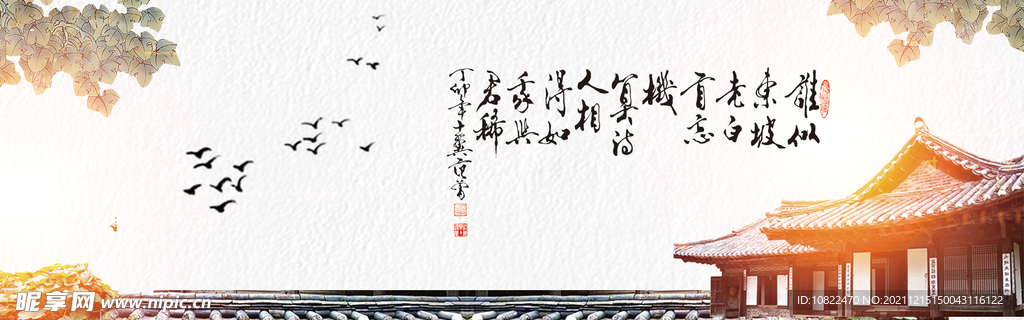 誰似
東坡
老白
首忘
機
算詩
人相
得如
我與
君稀
丁卯年十翼范曾
昵享网 www.nipic.cn
ID:10822470 NO:20211215150043116122